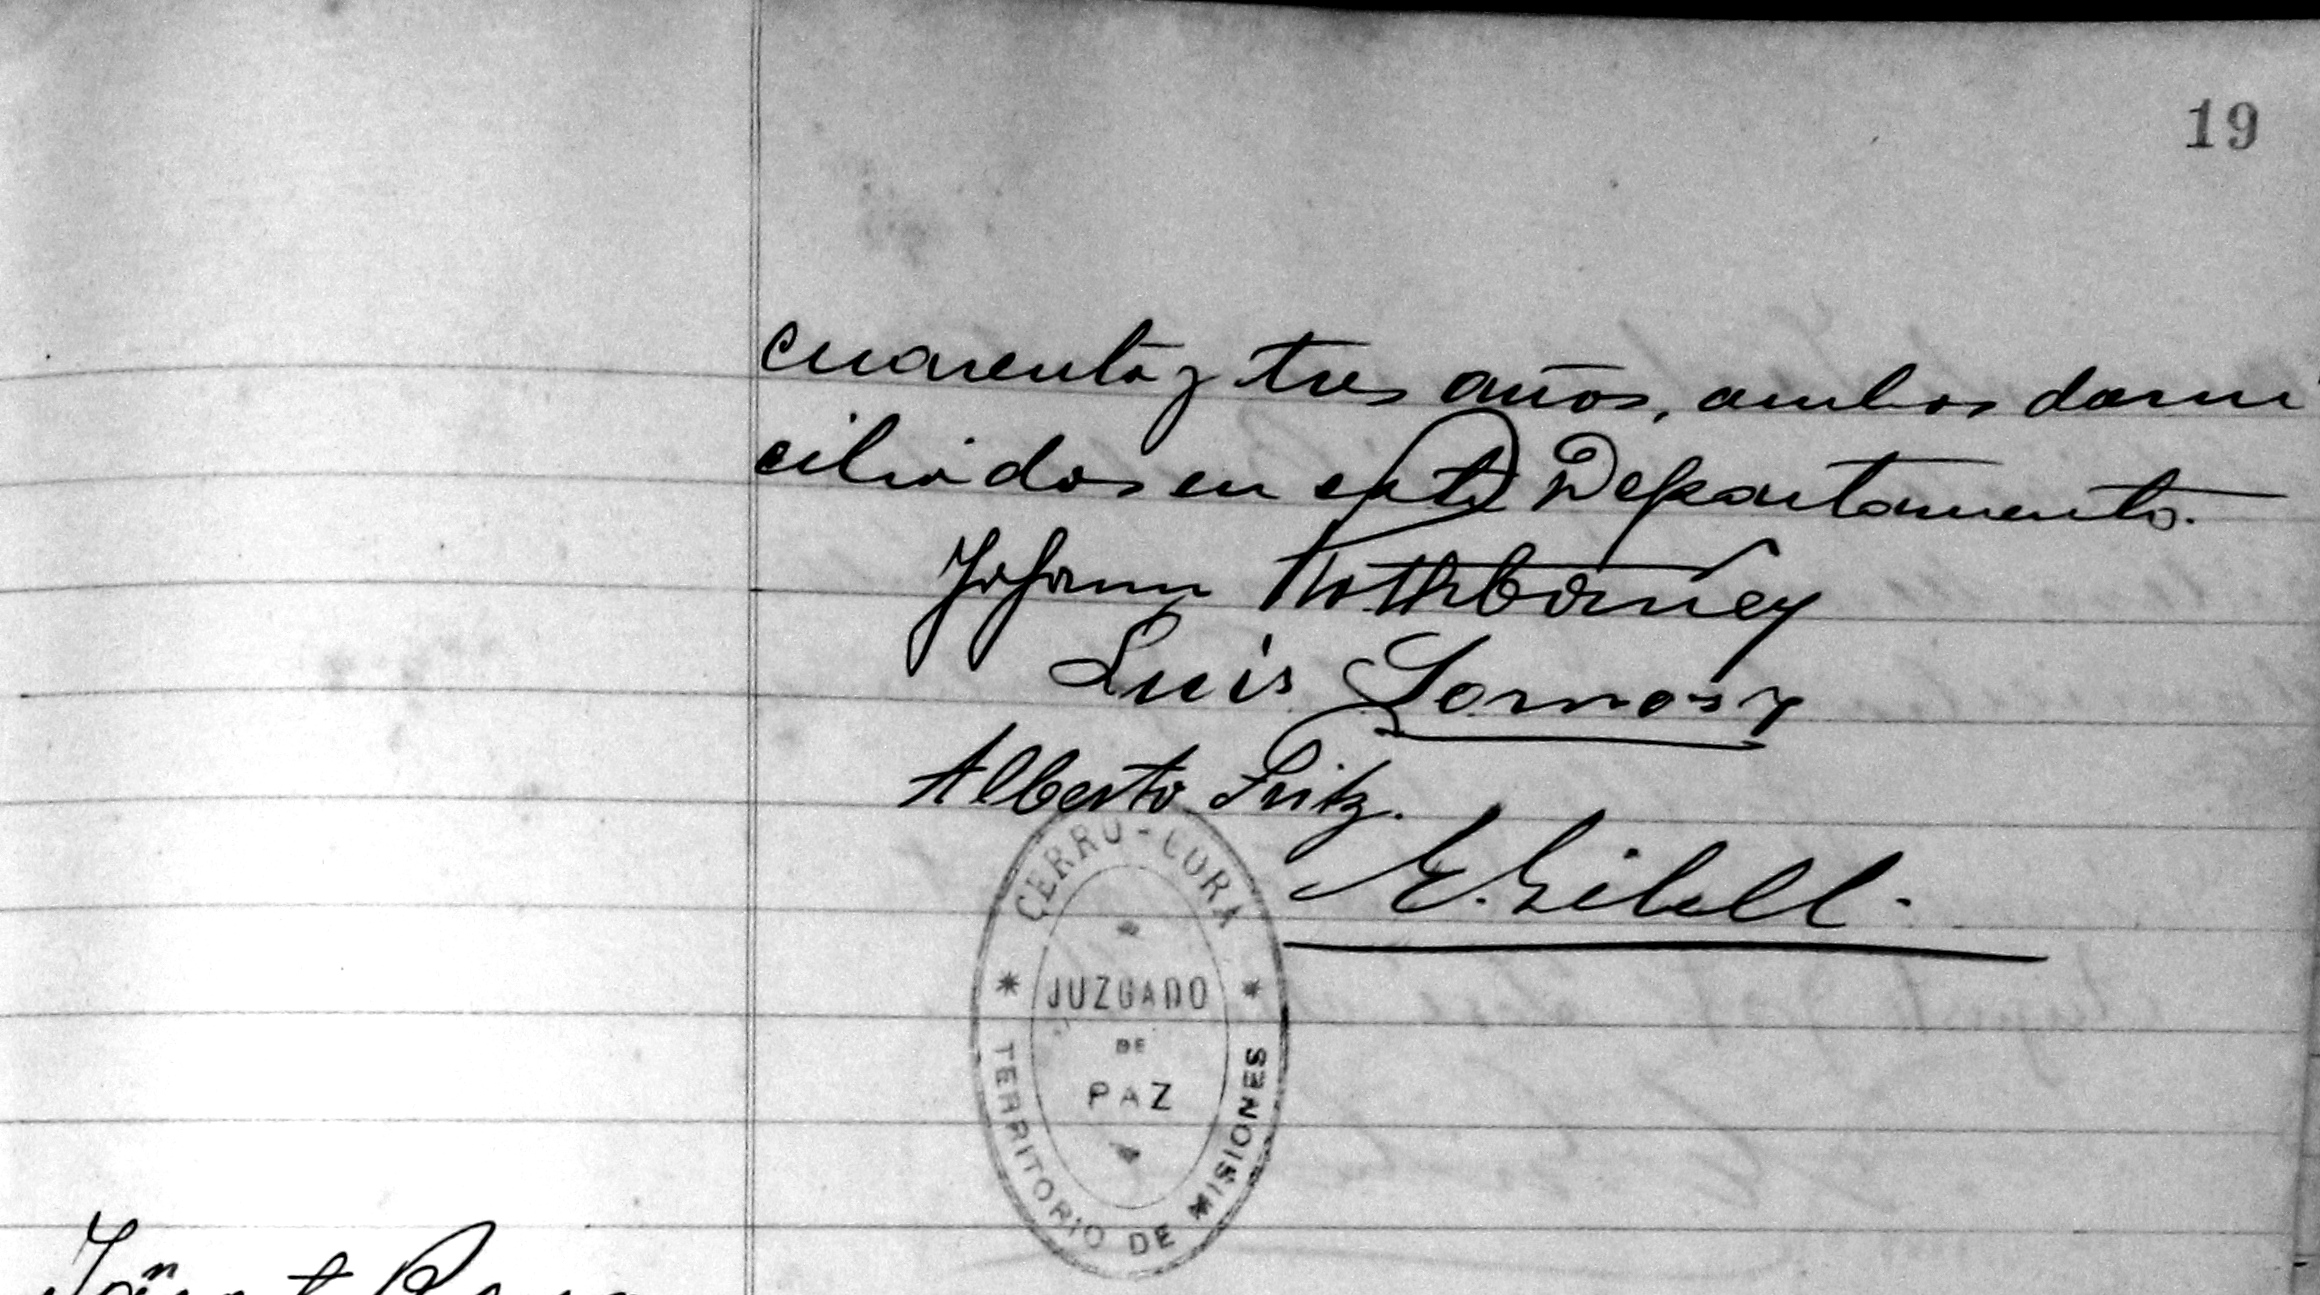 19
cuarenta y tres años, ambos domi
ciliados en este Departamento.
Johann
Luis
Alberto Fritz.
CERRO-CORA
JUZGADO
DE
PAZ
TERRITORIO DE MISIONES